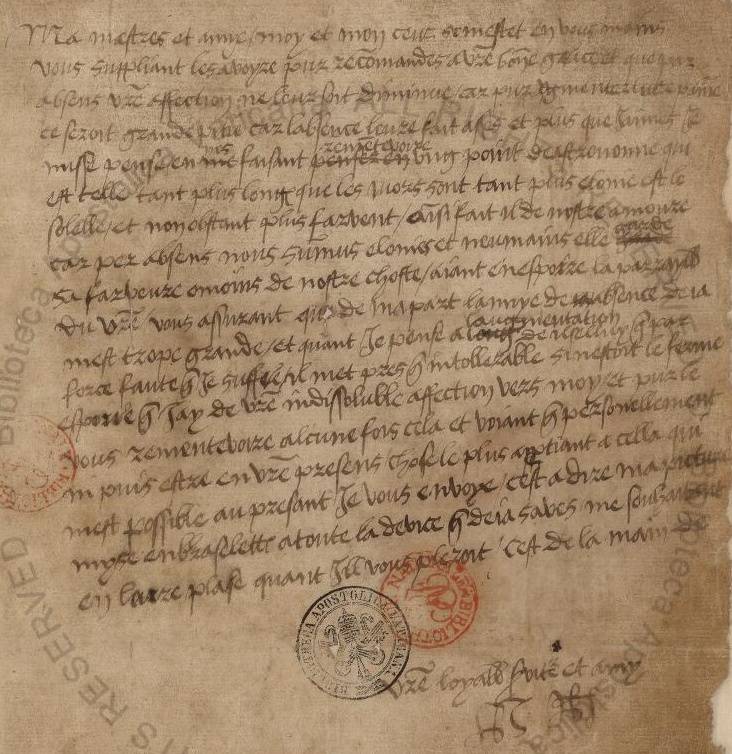 Ma mestres et amye moy et mon ceur semestet en vous mains
vous suppliant les avoyre pur recomandes a vre bone grace et que par
absens vre affection ne leur soit diminue car pur
ce seroit grande pitie car labsence leure fait ases et plus que Jamés Je
nuse pense en nous faisant rementevoire ung point de astronomie qui
est telle tant plus long que les Mors sont tant plus elonie est le
solelle / et non obstant plus farvent / ainsi fait il de nostre amoure
car per absens nous sumus elonies et neumains elle garde
sa farveure omoins de nostre choste / aiant en espoire la parrayll
du vre vous assurant que de ma part lannuye de absence deia
mest trope grande / et quant Je pense a laugmentation de icelluy q par
force faute q Je suffre / il met pres q intollerable si nestoit le ferme
espoire q Jay de vre indissoluble affection vers moy / et pur le
vous rementevoire alcune fois cela et voiant q personellement
ni puis estre en vre presens chose le plus aptiant a cella qui
mest possible au presant Je vous envoye / cest a dire ma picture
myse en braselette a toute la device q deia saves me souhaitant
en leure plase quant Ill vous pleroit / cest de la main de
vre loyall et amy
H R
BIBLIOTHECA APOSTOLICA VATICANA